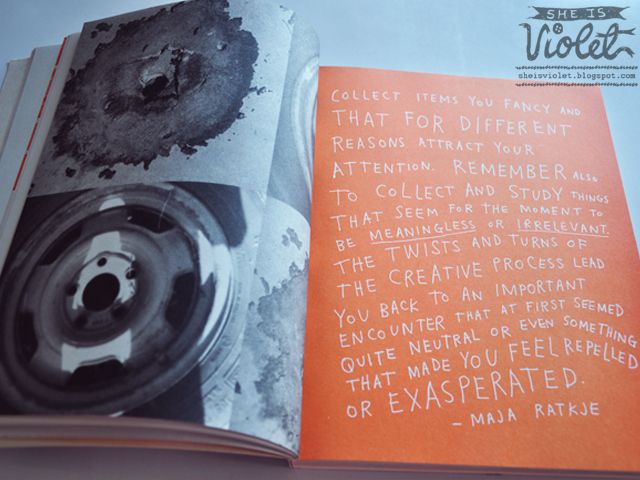 SHE IS
Violet
sheisviolet.blogspot.com
COLLECT ITEMS YOU FANCY AND
THAT FOR DIFFERENT
REASONS ATTRACT YOUR
ATTENTION. REMEMBER ALSO
TO COLLECT AND STUDY THINGS
THAT SEEM FOR THE MOMENT TO
BE MEANINGLESS OR IRRELEVANT.
THE TWISTS AND TURNS OF
THE CREATIVE PROCESS LEAD
YOU BACK TO AN IMPORTANT
ENCOUNTER THAT AT FIRST SEEMED
QUITE NEUTRAL OR EVEN SOMETHING
THAT MADE YOU FEEL REPELLED
OR EXASPERATED.
– MAJA RATKJE